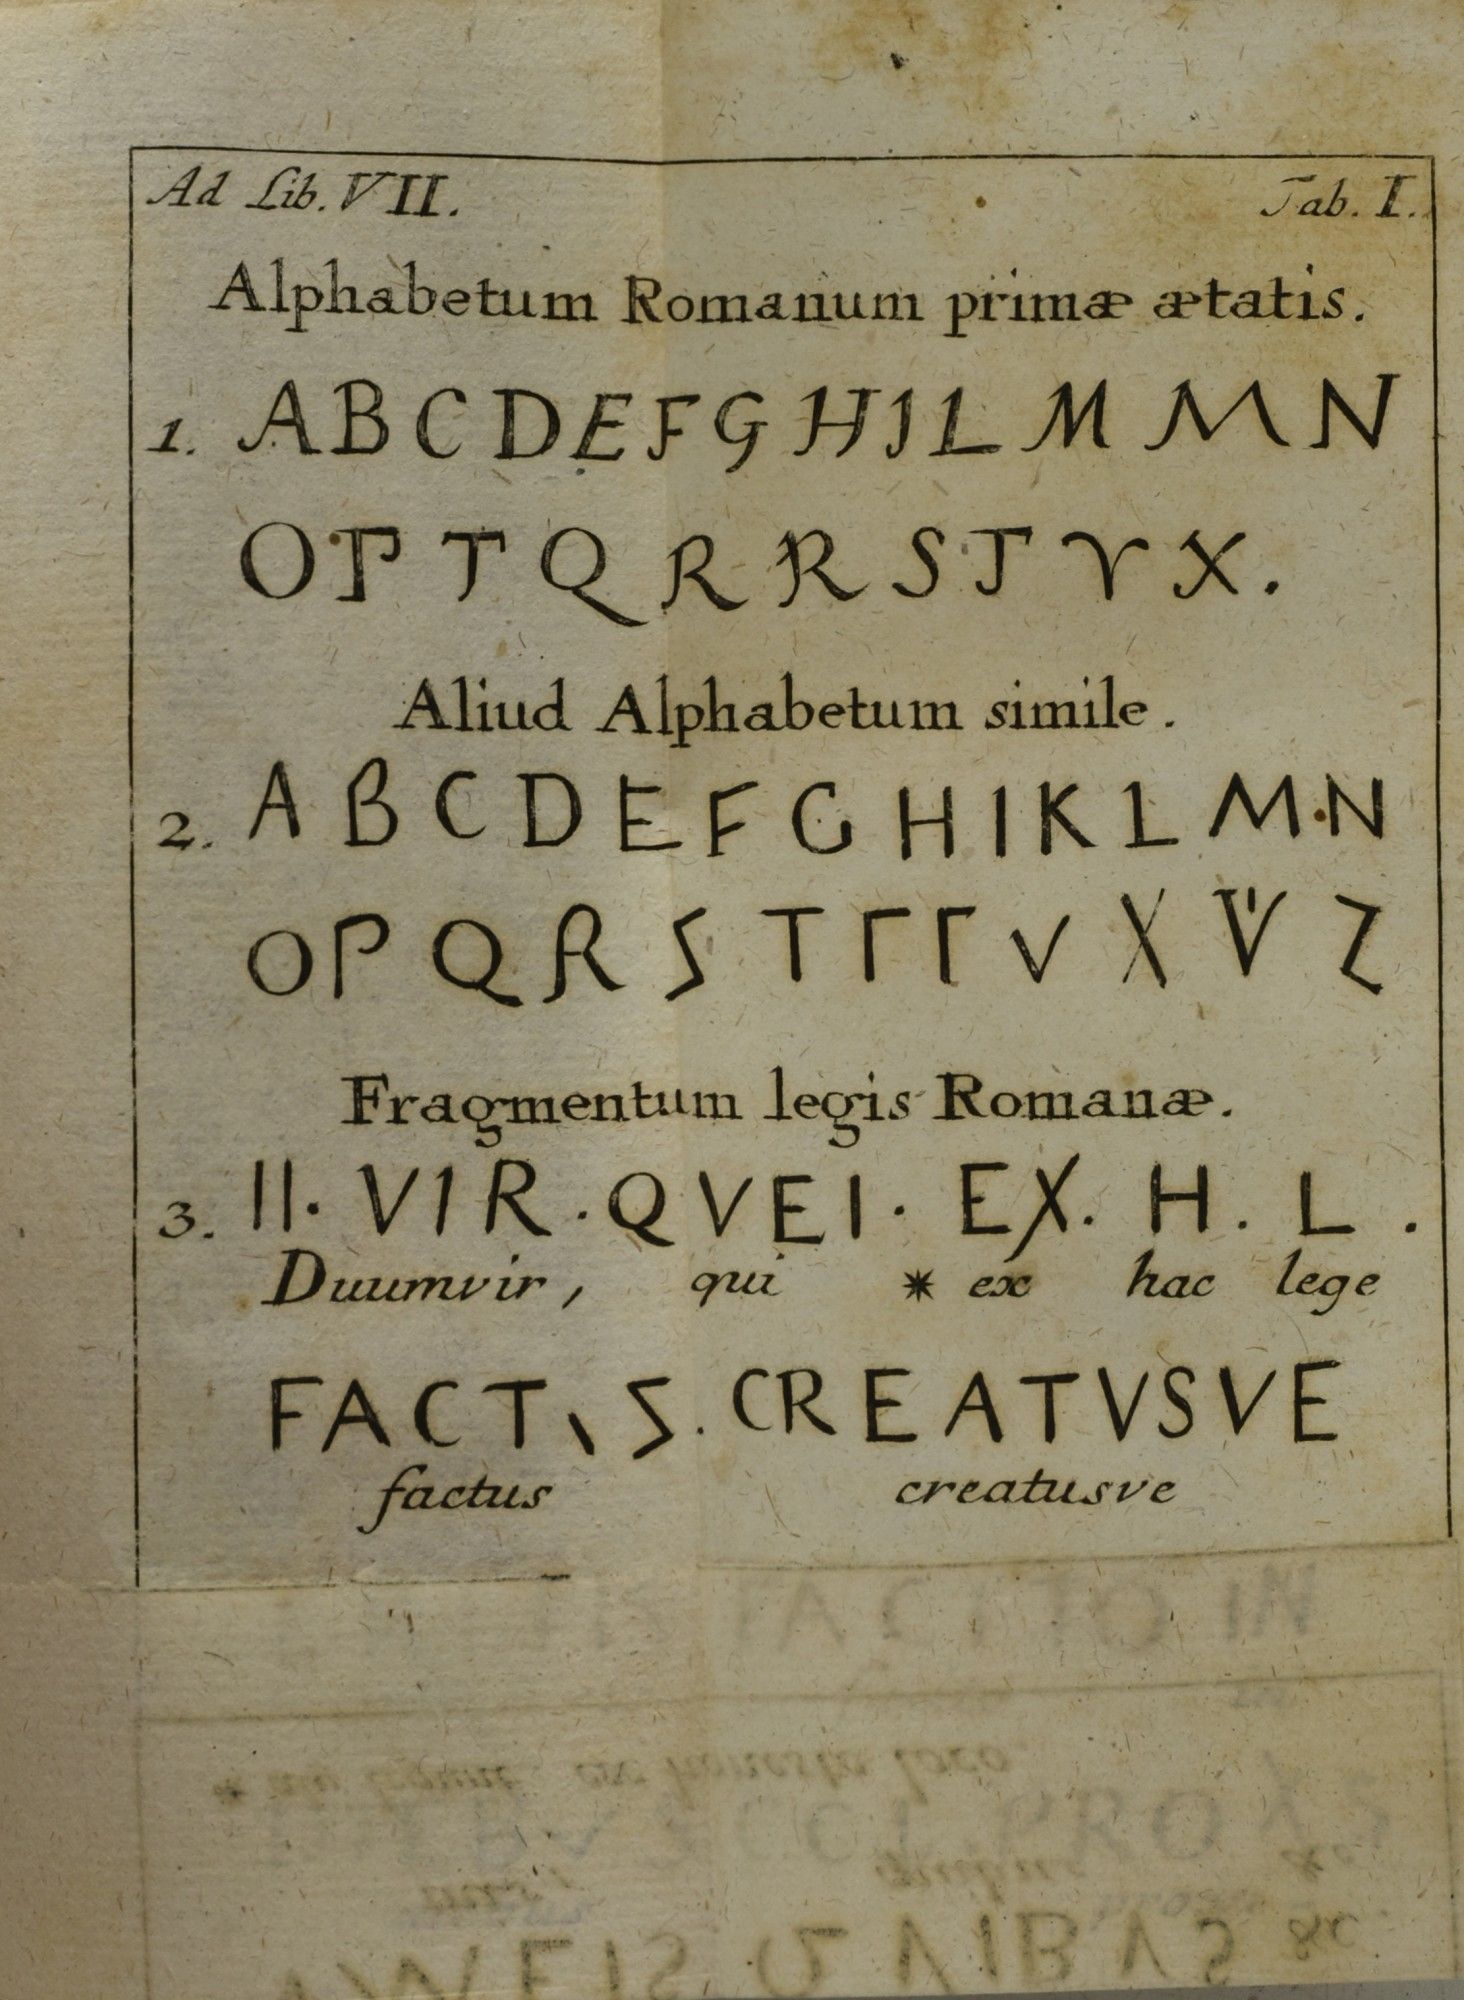 Ad Lib. VII. Tab. I.
Alphabetum Romanum primæ ætatis.
1. A B C D E F G H I L M M N
O P P Q R R S T V X.
Aliud Alphabetum simile.
2. A B C D E F G H I K L M N
O P Q R S T T T V X V Z
Fragmentum legis Romanæ.
3. II. VIR. QVEI. EX. H. L.
Duumvir, qui * ex hac lege
FACTVS. CREATVSVE
factus creatusve